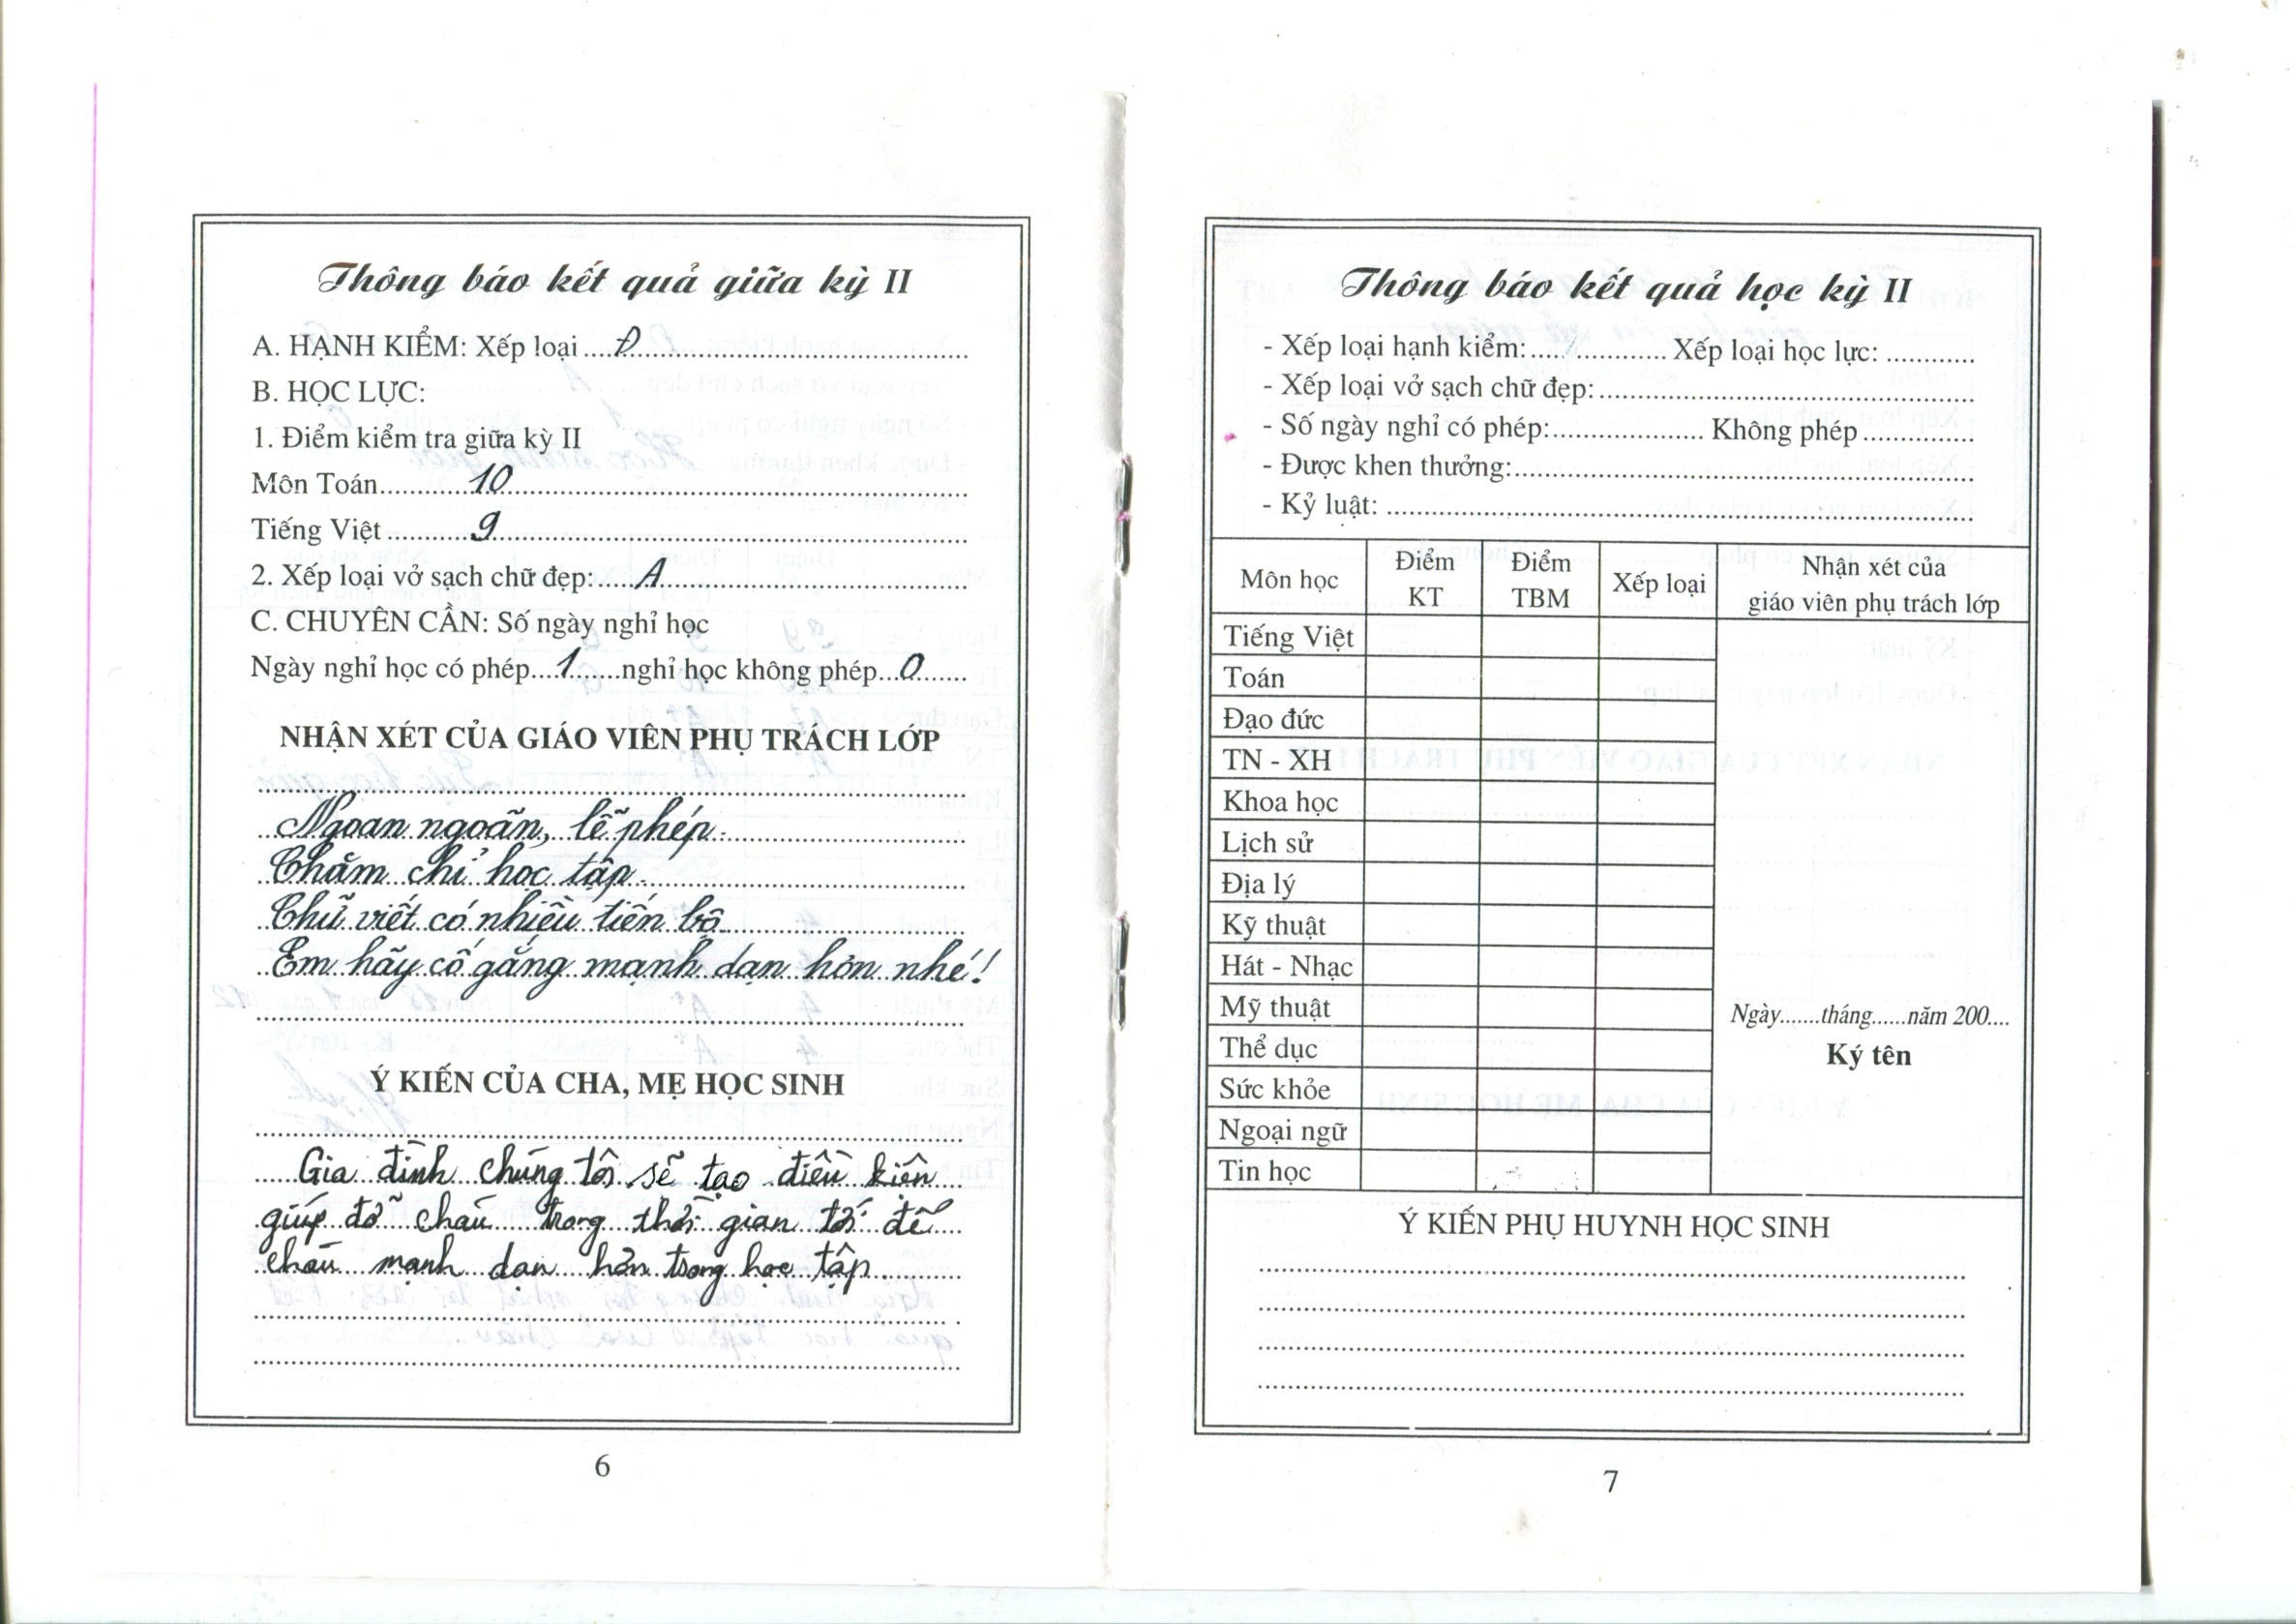 Thông báo kết quả giữa kỳ II
A. HẠNH KIỂM: Xếp loại ....Đ....
B. HỌC LỰC:
1. Điểm kiểm tra giữa kỳ II
Môn Toán....10....
Tiếng Việt....9....
2. Xếp loại vở sạch chữ đẹp:....A....
C. CHUYÊN CẦN: Số ngày nghỉ học
Ngày nghỉ học có phép...1......nghỉ học không phép...0......
NHẬN XÉT CỦA GIÁO VIÊN PHỤ TRÁCH LỚP
Ngoan ngoãn, lễ phép.
Chăm chỉ học tập.
Chữ viết có nhiều tiến bộ
Em hãy cố gắng mạnh dạn hơn nhé!
Ý KIẾN CỦA CHA, MẸ HỌC SINH
Gia đình chúng tôi sẽ tạo điều kiện
giúp đỡ cháu trong thời gian tới để
cháu mạnh dạn hơn trong học tập
6
Thông báo kết quả học kỳ II
- Xếp loại hạnh kiểm:.................. Xếp loại học lực: ............
- Xếp loại vở sạch chữ đẹp:....
- Số ngày nghỉ có phép:.................... Không phép...............
- Được khen thưởng:....
- Kỷ luật: ....
Môn học Điểm KT Điểm TBM Xếp loại Nhận xét của giáo viên phụ trách lớp
Tiếng Việt
Toán
Đạo đức
TN - XH
Khoa học
Lịch sử
Địa lý
Kỹ thuật
Hát - Nhạc
Mỹ thuật
Ngày.......tháng......năm 200....
Thể dục
Ký tên
Sức khỏe
Ngoại ngữ
Tin học
Ý KIẾN PHỤ HUYNH HỌC SINH
7